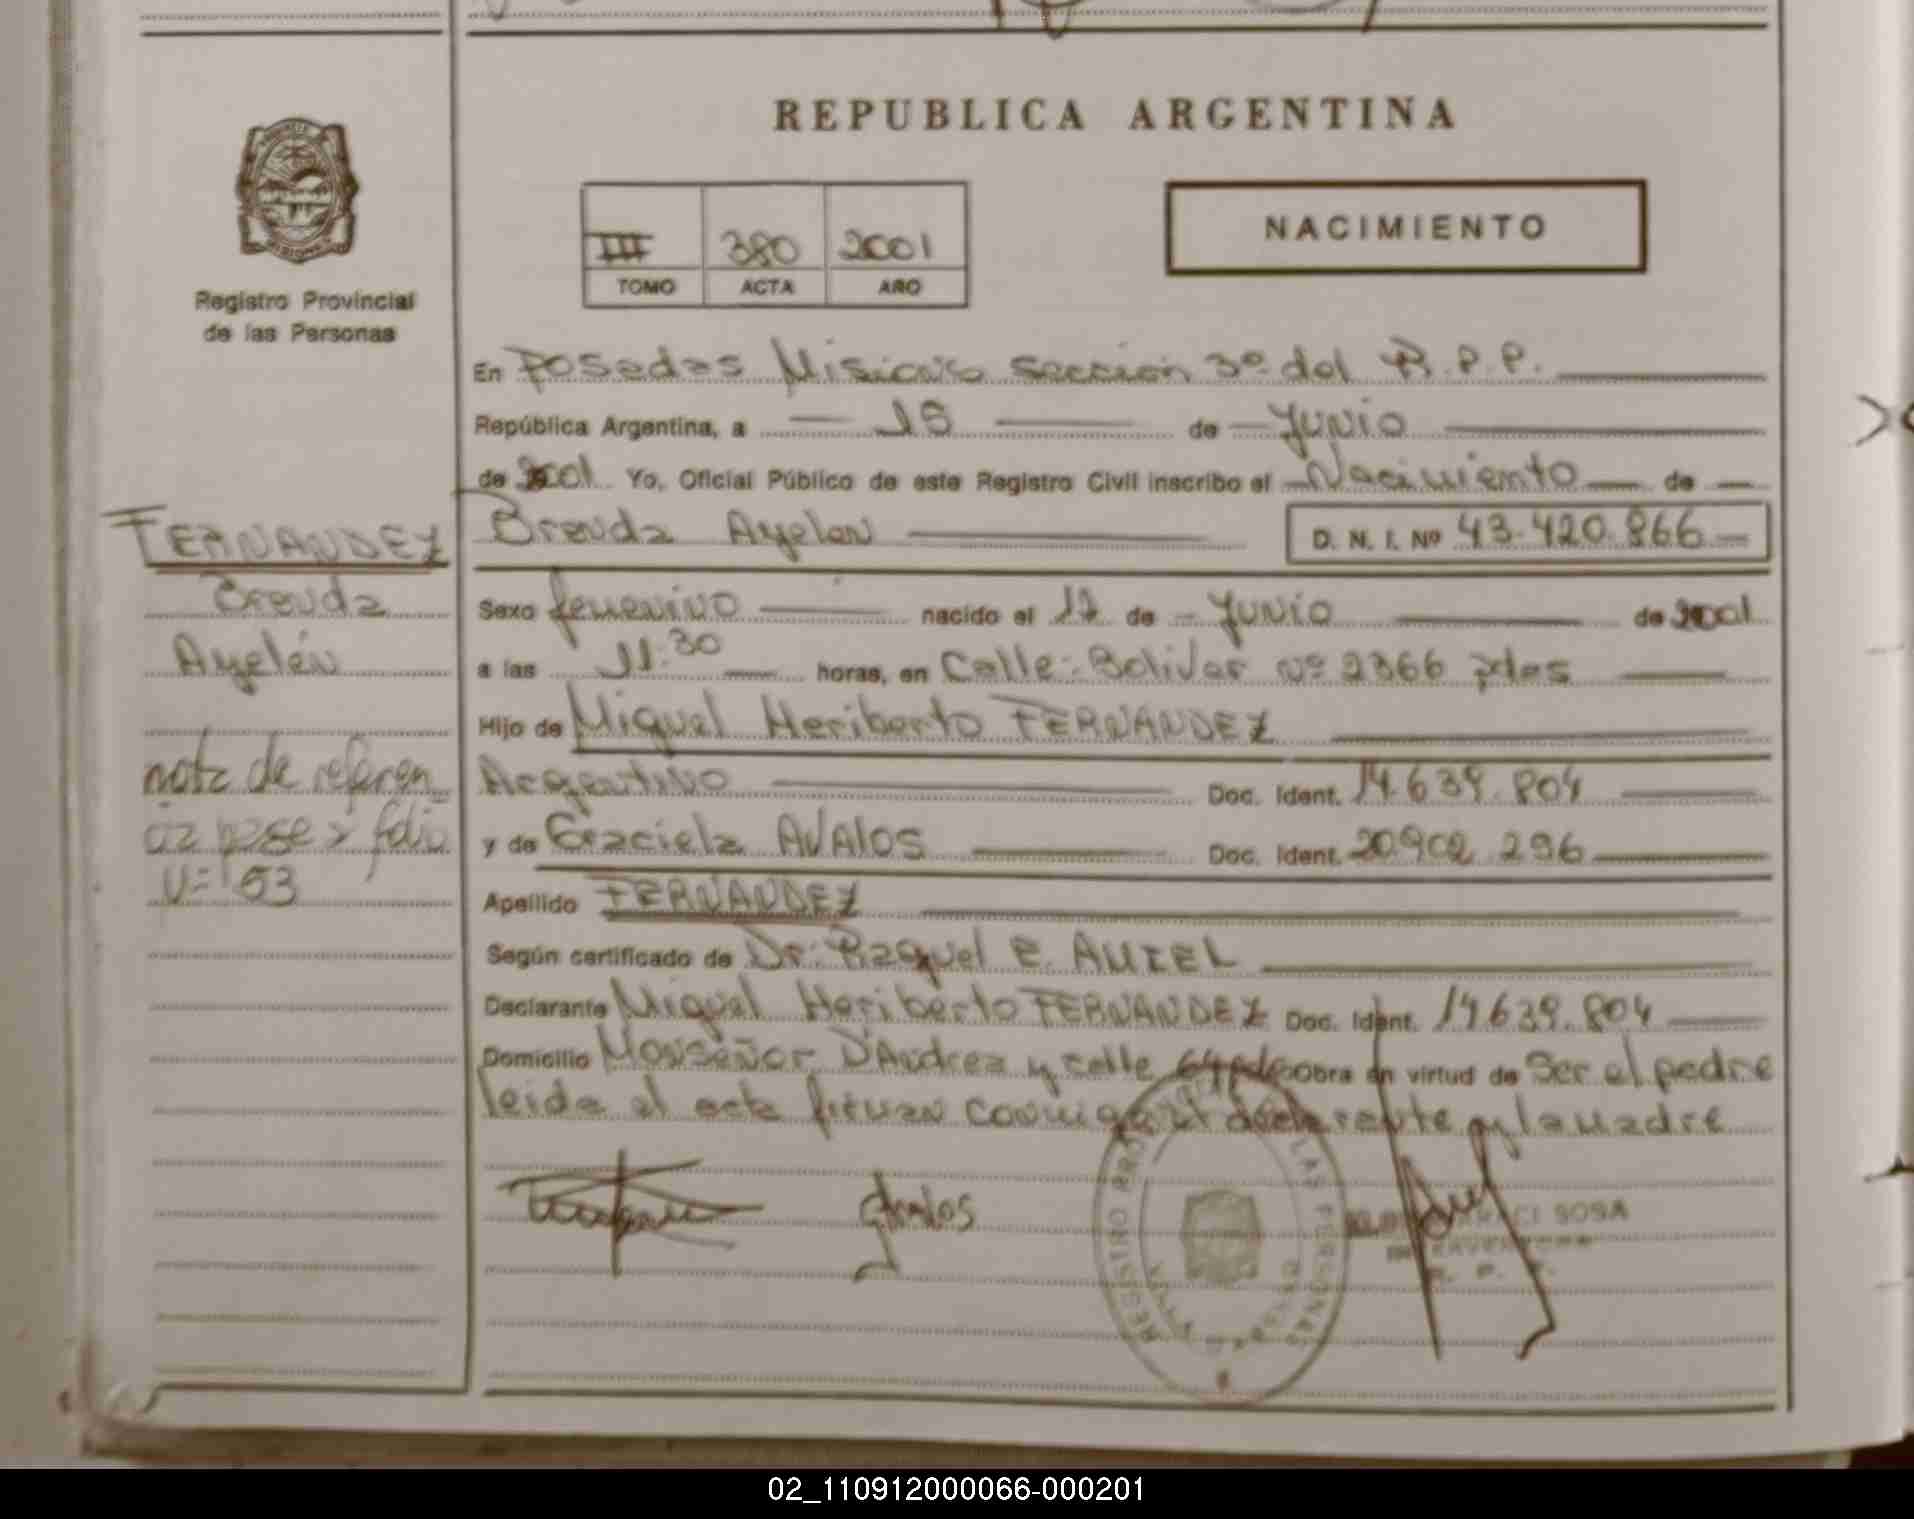 REPUBLICA ARGENTINA
NACIMIENTO
III 380 2001
TOMO ACTA AÑO
Registro Provincial
de las Personas
En Posadas Misiones sección 3º del R.P.P.
República Argentina, a de Junio
de 2001 Yo, Oficial Público de este Registro Civil inscribo el Nacimiento de
FERNANDEZ
Brenda
Ayelén
nota de referen
cia pase a folio
Nº 153
Brenda Ayelen D. N. I. Nº 43.420.866
Sexo femenino nacido el de Junio de 2001
a las 11:30 horas, en Calle: Bolivar Nº 2366 pdas
Hijo de Miguel Heriberto FERNANDEZ
Argentino Doc. Ident. 14.639.804
y de Graciela AVALOS Doc. Ident. 20.902.296
Apellido FERNANDEZ
Según certificado de Dr: Raquel E.
Declarante Miguel Heriberto FERNANDEZ Doc. Ident. 14.639.804
Domicilio Monseñor D'Andrea y calle Obra en virtud de Ser el padre
leida el acta firman conmigo el declarante y la madre
REGISTRO LAS PERSONAS
SOSA
02_110912000066-000201